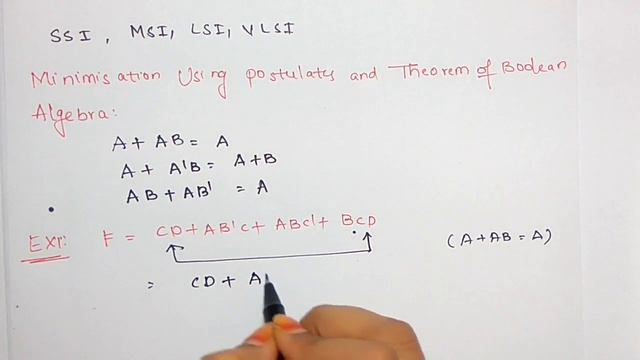 SSI, MSI, LSI, VLSI
Minimisation Using postulates and Theorem of Boolean
Algebra:
A + AB = A
A + A'B = A+B
AB + AB' = A
Ex1: F = CD + AB'C + ABC' + BCD
(A + AB = A)
= CD + A